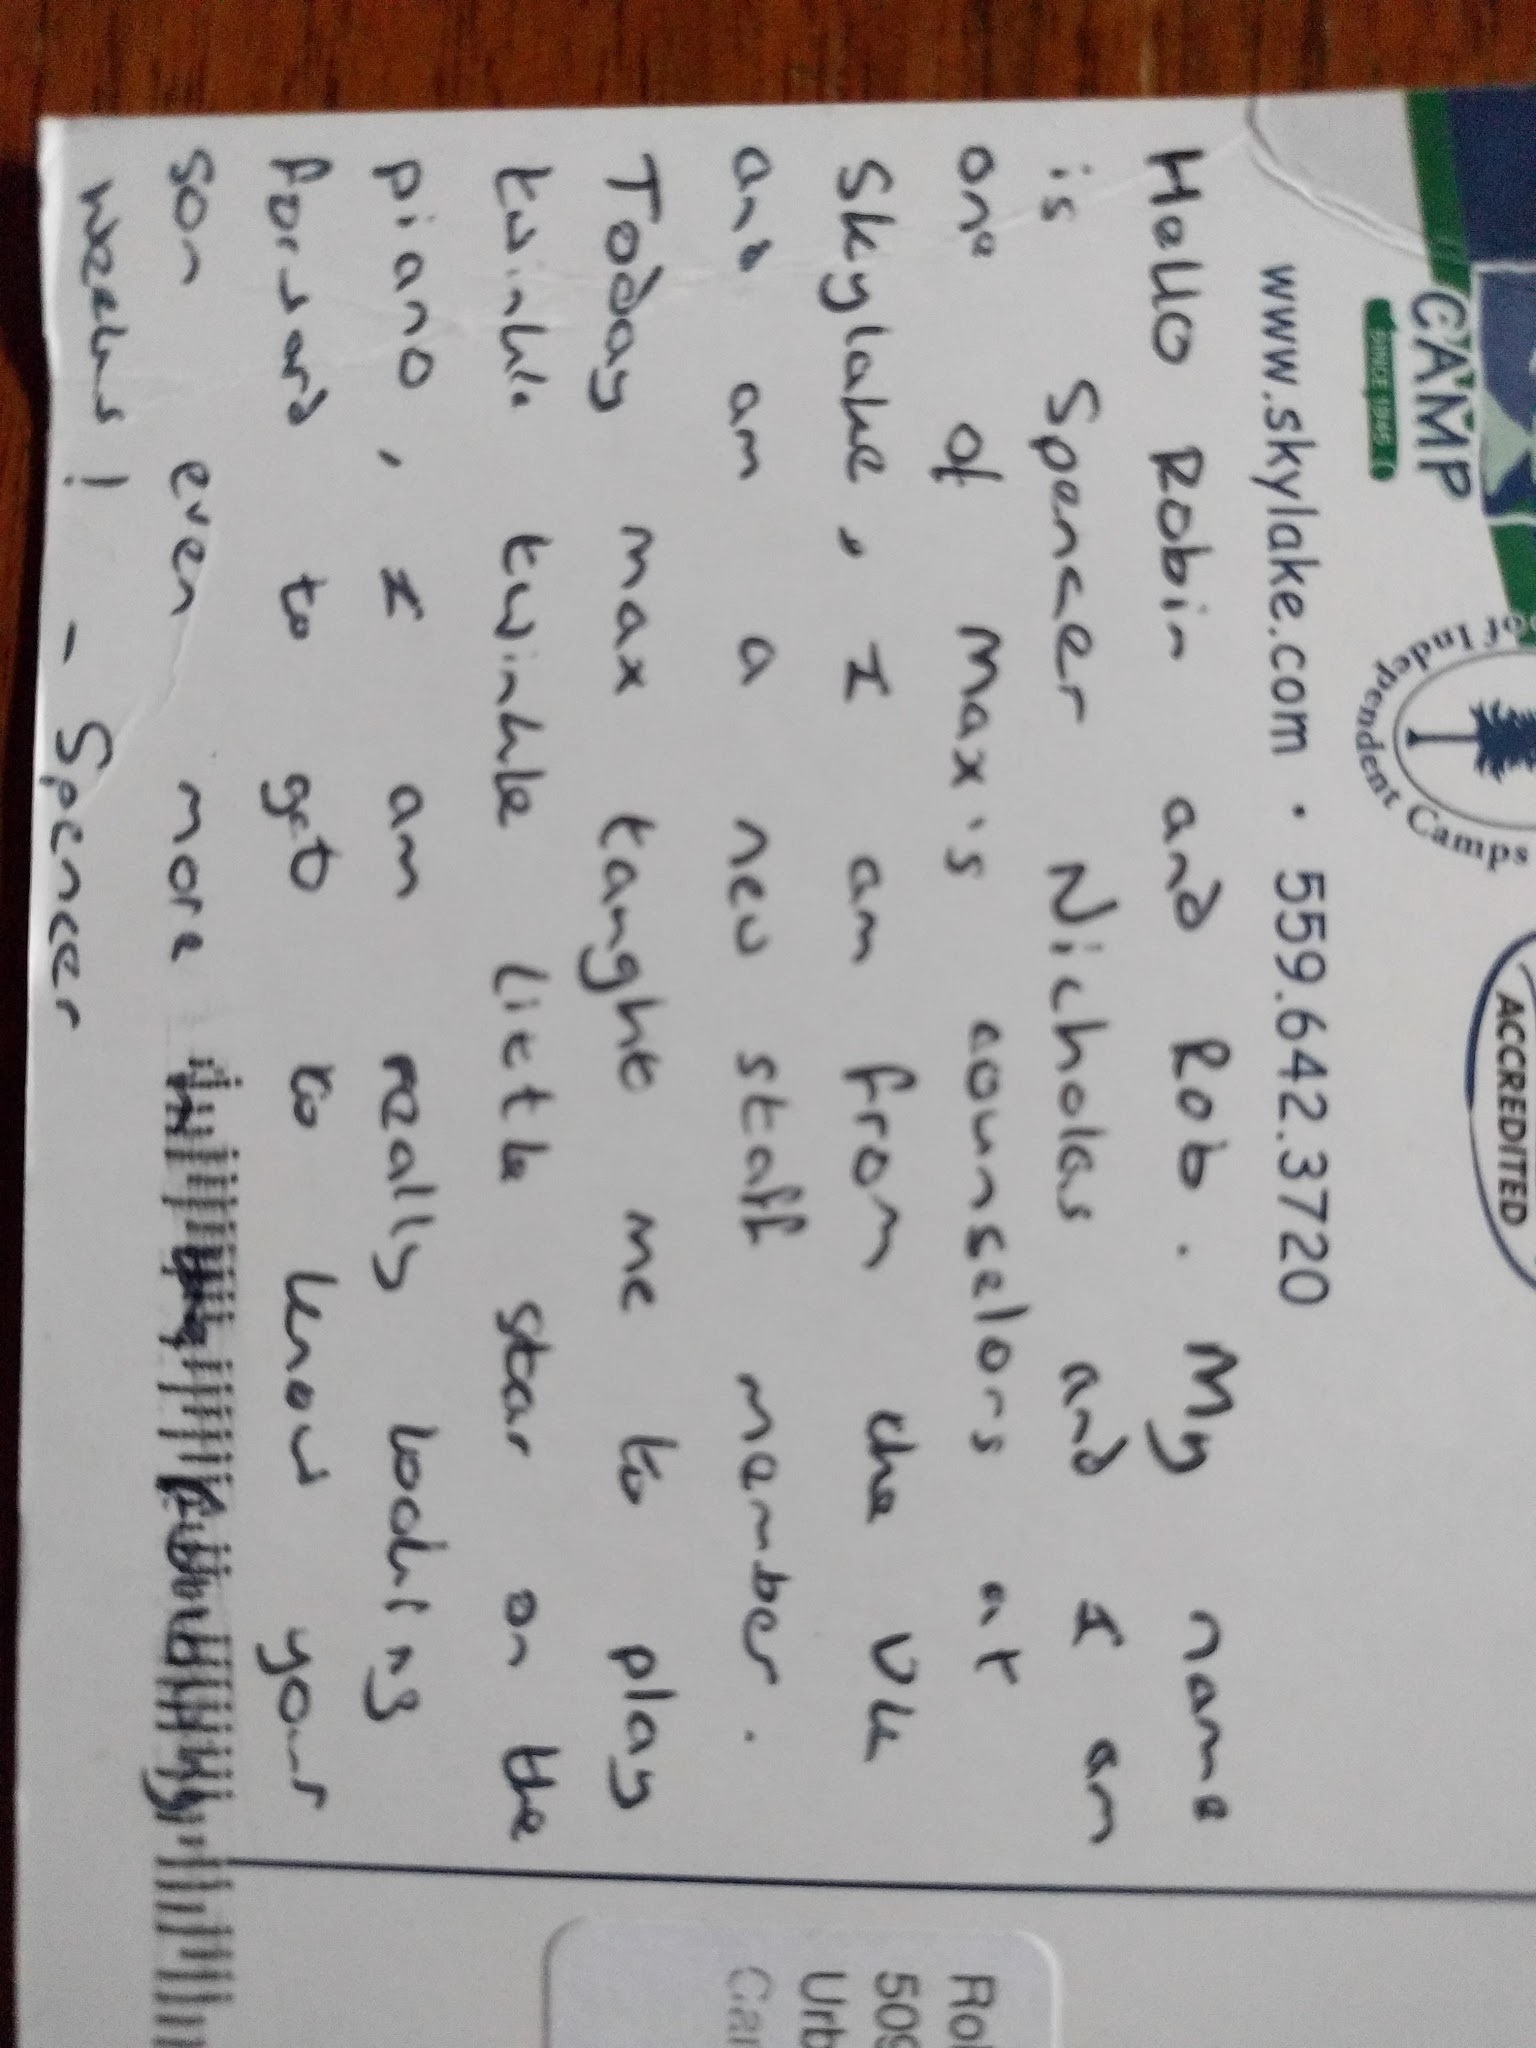 CAMP
SINCE 1945
of Independent Camps
ACCREDITED
www.skylake.com • 559.642.3720
Hello Robin and Rob. My name
is Spencer Nicholas and I am
one of Max's counselors at
Skylake, I am from the UK
and am a new staff member.
Today max taught me to play
twinkle twinkle little star on the
piano, I am really looking
forward to get to know your
son even more
weeks! - Spencer
509